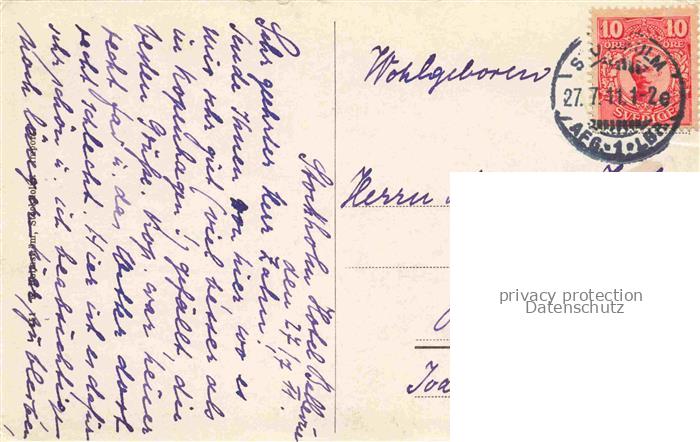 Stockholm Hotel Bellevue
den 27/7 11.
Sehr geehrter Herr Zahn!
Sende Ihnen von hier wo es
mir sehr gut (viel besser als
in Kopenhagen) gefällt, die
besten Grüße. Kop. war heuer
recht fad u. das Wetter dort
recht schlecht. Hier ist es dafür
sehr schön u. ich beabsichtige
noch länger hier zu bleiben
Wohlgeboren
Herrn
10 10
ÖRE ÖRE
SVERIGE
STOCKHOLM
27.7.11.1-2e
AFG.1.LBR.
privacy protection
Datenschutz